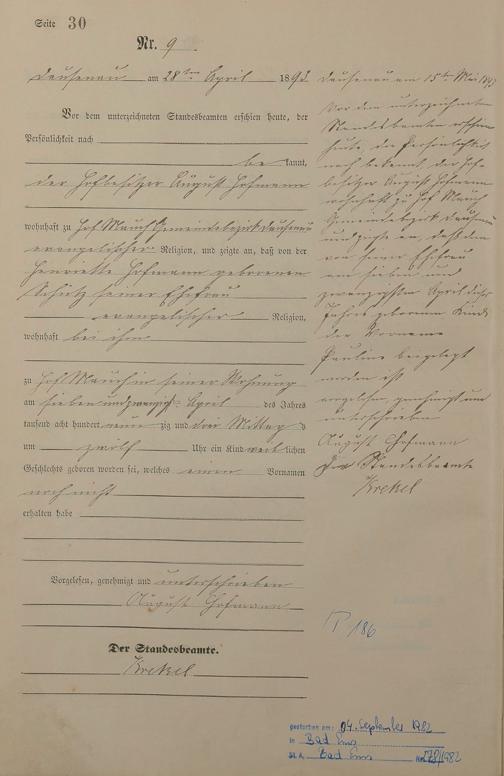 Seite 30
Nr. 9
Dausenau am 28ten April 189
Vor dem unterzeichneten Standesbeamten erschien heute, der
Persönlichkeit nach
be kannt,
der Hofbesitzer August Hofmann
wohnhaft zu Hof Mauch Gemeindebezirk Dausenau
evangelischer Religion, und zeigte an, daß von der
Henriette Hofmann geborenen
Schütz seiner Ehefrau
evangelischer Religion,
wohnhaft bei ihm
zu Hof Mauch in seiner Wohnung
am sieben und zwanzigsten April des Jahres
tausend acht hundert neun zig und drei Mittags
um zwölf Uhr ein Kind weib lichen
Geschlechts geboren worden sei, welches einen Vornamen
noch nicht
erhalten habe
Vorgelesen, genehmigt und unterschrieben
August Hofmann
Der Standesbeamte.
Krekel
Dausenau am 15ten Mai
Vor dem unterzeichneten
Standesbeamten erschien
heute, der Persönlichkeit
nach bekannt, der Hof-
besitzer August Hofmann
wohnhaft zu Hof Mauch
Gemeindebezirk Dausenau
und zeigte an, daß dem
von seiner Ehefrau
am sieben und
zwanzigsten April dieses
Jahres geborenen Kinde
der Vorname
Pauline beigelegt
worden ist
vorgelesen, genehmigt und
unterschrieben
August Hofmann
Der Standesbeamte
Krekel
P 186
gestorben am: 04. September 1982
in Bad Ems
St. A. Bad Ems Nr. 78/1982